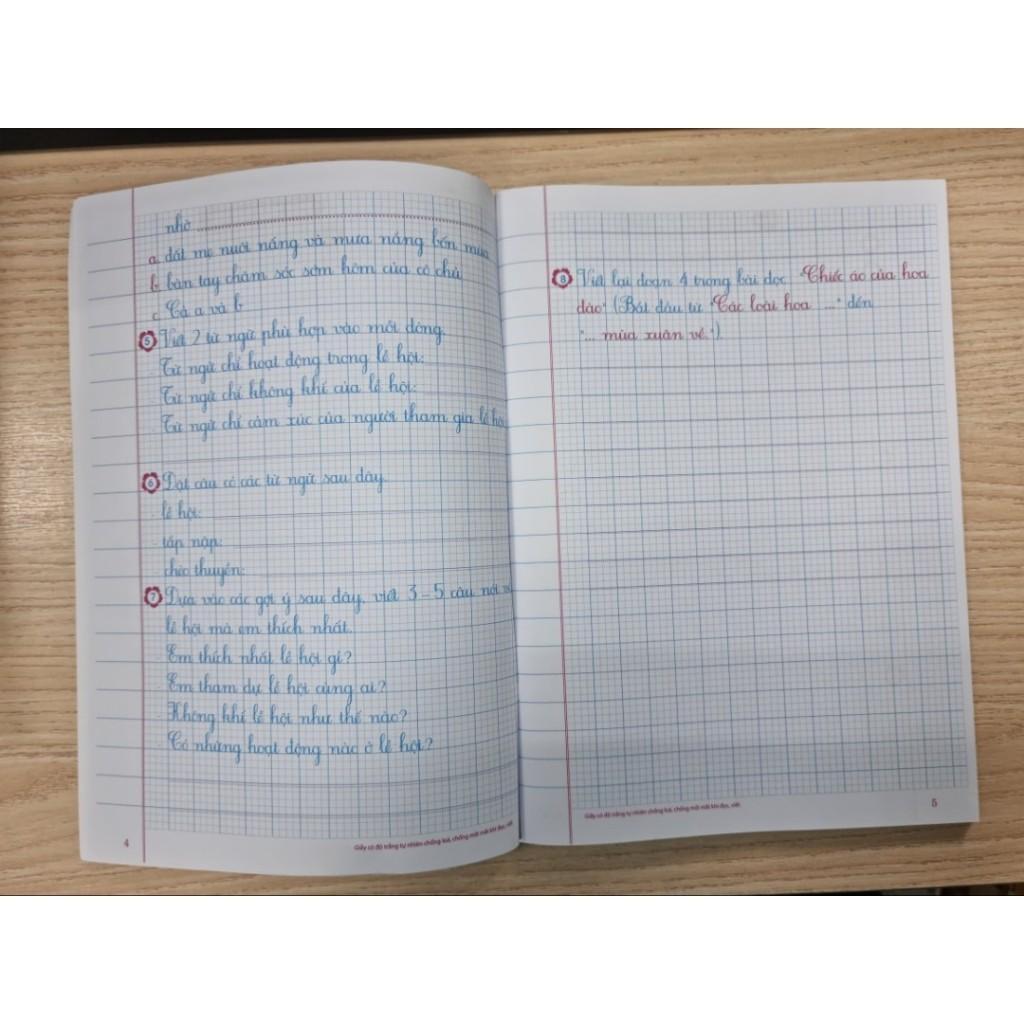 nhờ
a. đất mẹ nuôi nấng và mưa nắng bốn mùa
b. bàn tay chăm sóc sớm hôm của cô chú
c. Cả a và b
5 Viết 2 từ ngữ phù hợp vào mỗi dòng.
- Từ ngữ chỉ hoạt động trong lễ hội:
- Từ ngữ chỉ không khí của lễ hội:
- Từ ngữ chỉ cảm xúc của người tham gia lễ hội
6 Đặt câu có các từ ngữ sau đây.
- lễ hội:
- tấp nập:
- chèo thuyền:
7 Dựa vào các gợi ý sau đây, viết 3 - 5 câu nói về
lễ hội mà em thích nhất.
- Em thích nhất lễ hội gì?
- Em tham dự lễ hội cùng ai?
- Không khí lễ hội như thế nào?
- Có những hoạt động nào ở lễ hội?
4
Giấy có độ trắng tự nhiên chống loá, chống mỏi mắt khi đọc, viết
8 Viết lại đoạn 4 trong bài đọc "Chiếc áo của hoa
đào" (Bắt đầu từ "Các loài hoa ..." đến
"... mùa xuân về.").
Giấy có độ trắng tự nhiên chống loá, chống mỏi mắt khi đọc, viết
5